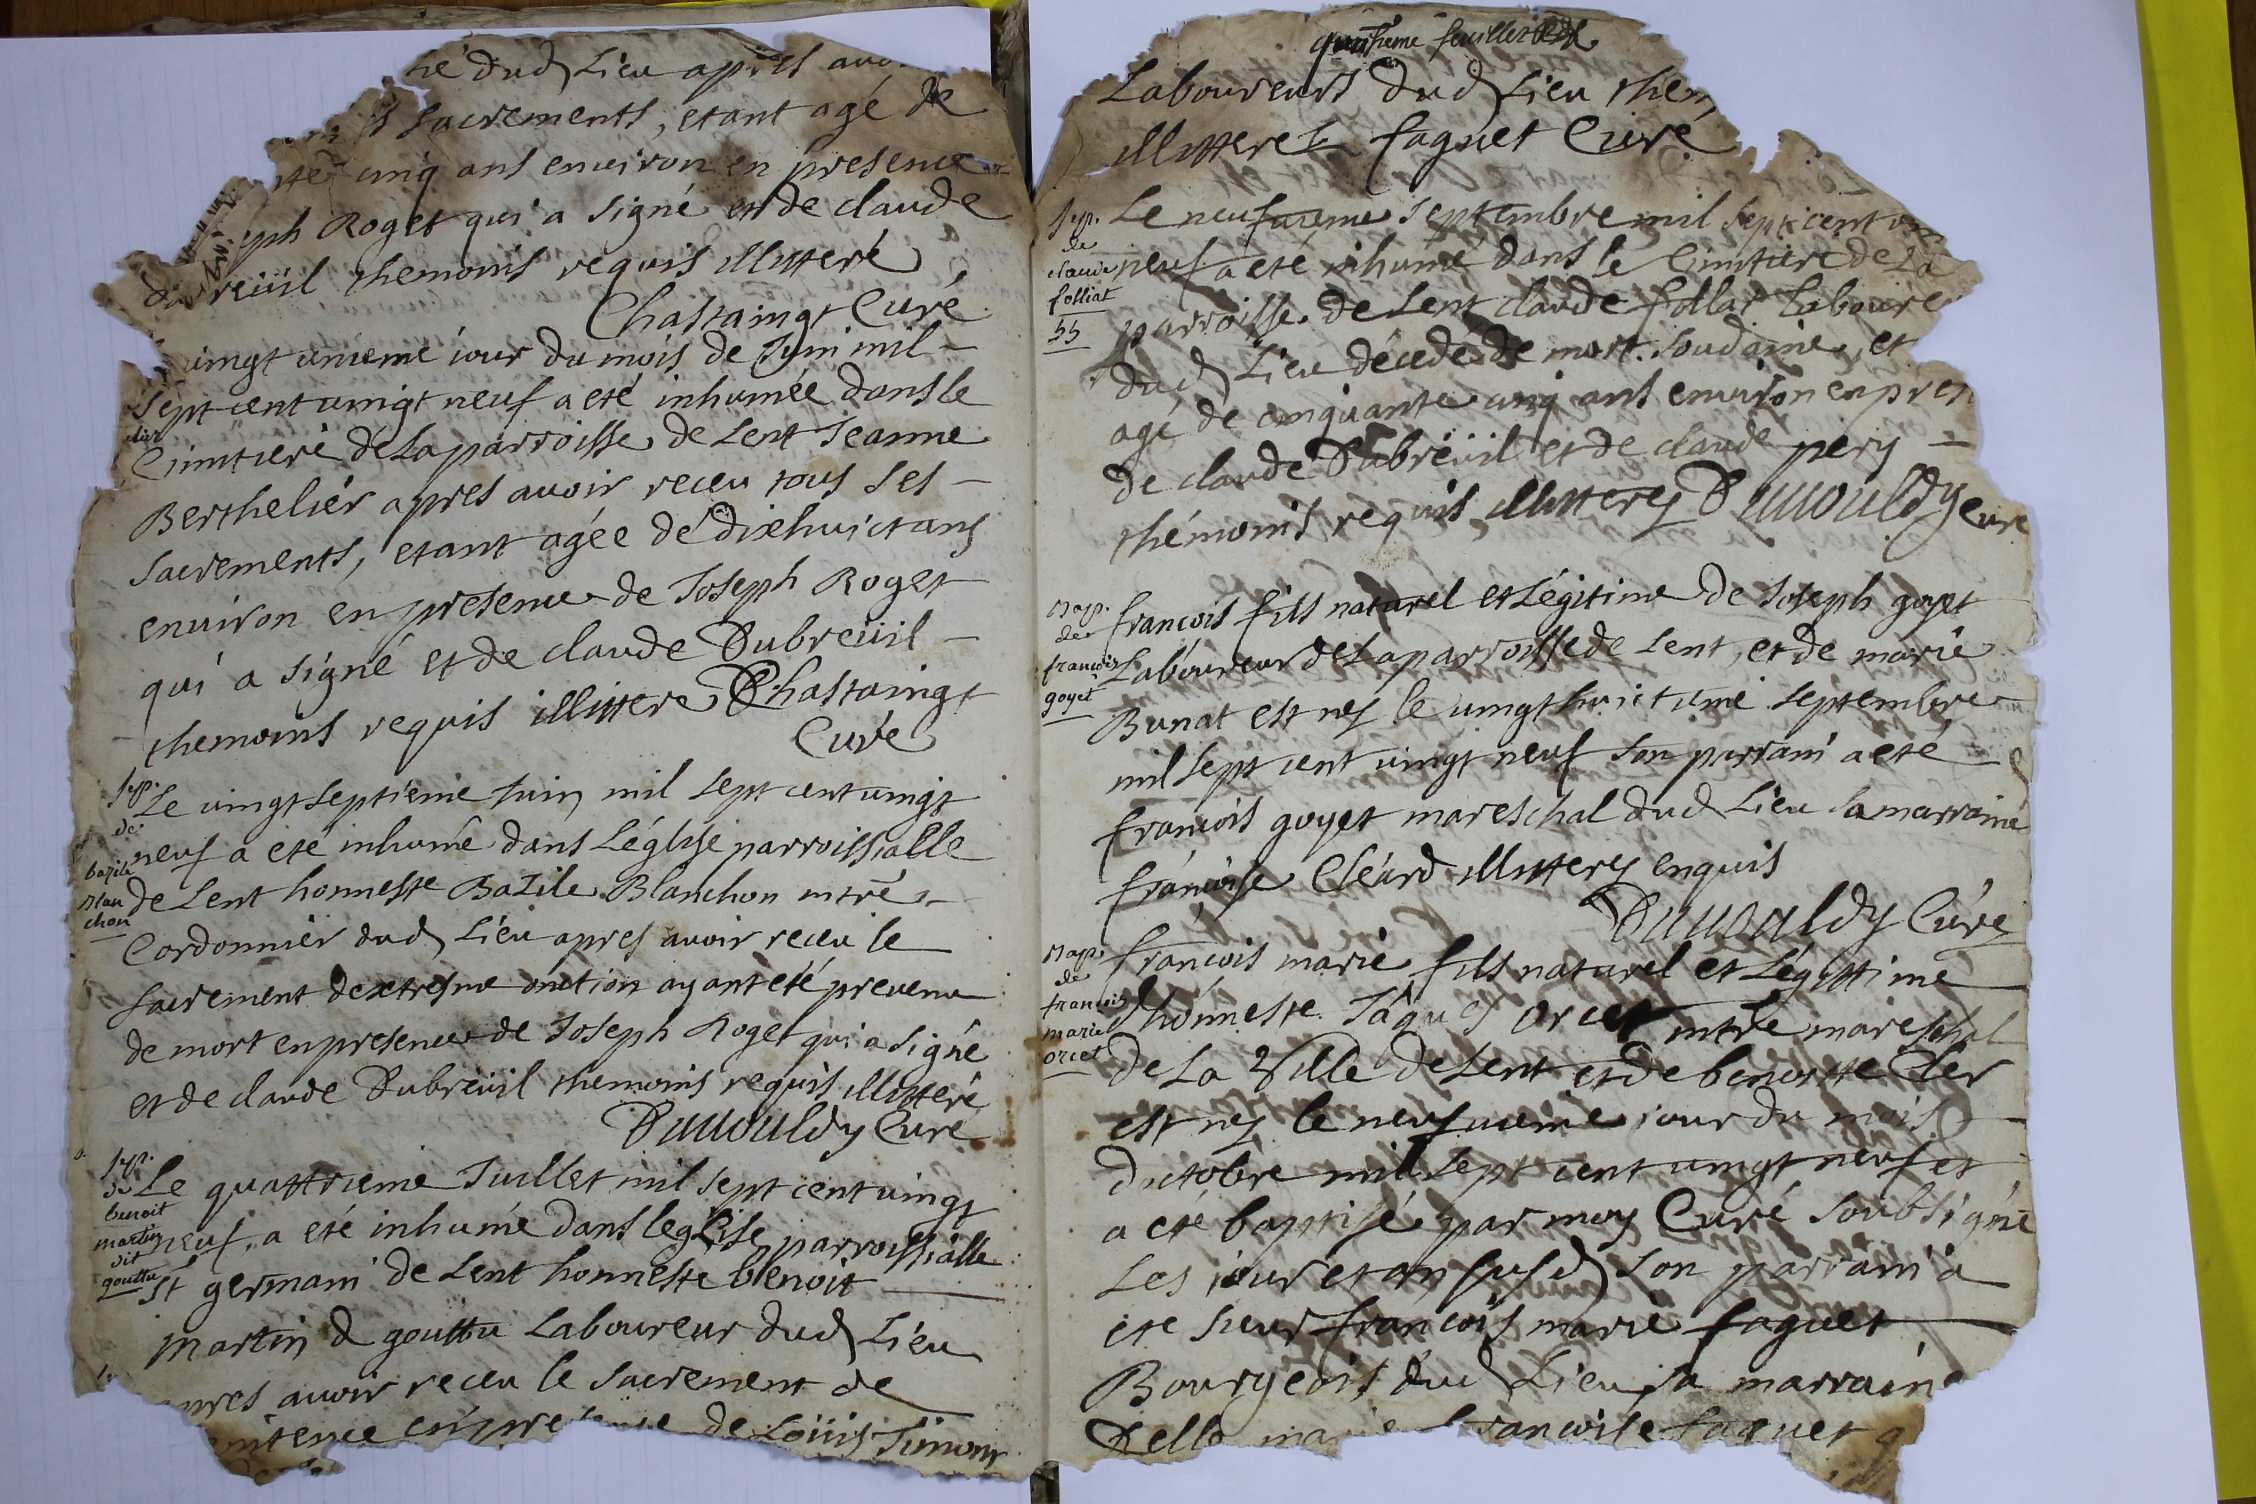 dud Lieu apres
sacrements, etant agé de
cinq ans environ en presence
ph Roget qui a signé et de claude
dubreüil themoins requis illitteré
Chastaingt Curé
vingt unieme iour du mois de Juin mil
sept cent vingt neuf a eté inhumée dans le
Cimtiere de La parroisse de Lent Jeanne
Berthelier apres avoir receu tous ses
sacrements, etant agée de dixhuict ans
environ en presence de Joseph Roget
qui a signé et de claude Dubreüil
themoins requis illittere Chastaingt
Curé
sep. de bazile blanchon
Le vingt septiéme Juin mil sept cent vingt
neuf a eté inhumé dans Léglise parroissialle
de Lent honneste Bazile Blanchon mtre
Cordonnier dud Lieu apres avoir receu le
sacrement dextresme onction ayant eté prevenu
de mort en presence de Joseph Roget qui a signé
et de claude Dubreüil themoins requis illitteré
Duvouldy Curé
sep. de benoit martin dit gouttu
Le quattrieme Juillet mil sept cent vingt
neuf, a eté inhumé dans leglise parroissialle
st germain de Lent honneste benoit
martin d gouttu Laboureur dud Lieu
apres avoir receu le sacrement de
penitence en presence de Loüis Timon
feuillet
Laboureurs dud Lieu them
illittere faguet Curé
sep. de claude folliat
55
Le neufvieme septembre mil sept cent
neuf a eté inhumé dans le Cimtiere de La
parroisse de Lent claude follat Laboure
dud Lieu décedé de mort soudaine, et
agé de cinquante cinq ans environ en pres
de claude Dubreüil et de claude pery
thémoins requis illitterez Duvouldy curé
Bap. de francois goyet
francois fils naturel et Légitime de Joseph goyet
Laboureur de La parroisse de Lent, et de marie
Bunat est nez le vingt huictieme septembre
mil sept cent vingt neuf son parrain a eté
francois goyet mareschal dud Lieu sa marraine
francoise Cléard illitterez enquis
Duvouldy Curé
Bap. de francois marie orcet
francois marie fils naturel et Légittime
dhonneste Jâques orcet mtre mareschal
de La Ville de Lent et de benoitte Cler
est nez le neufvieme iour du mois
doctobre mil sept cent vingt neuf et
a eté baptisé par moy Curé soubsigné
Les iour et an susd son parrain a
ete sieur francois marie faguet
Bourgeois dud Lieu sa marraine
Delle marie francoise faguet